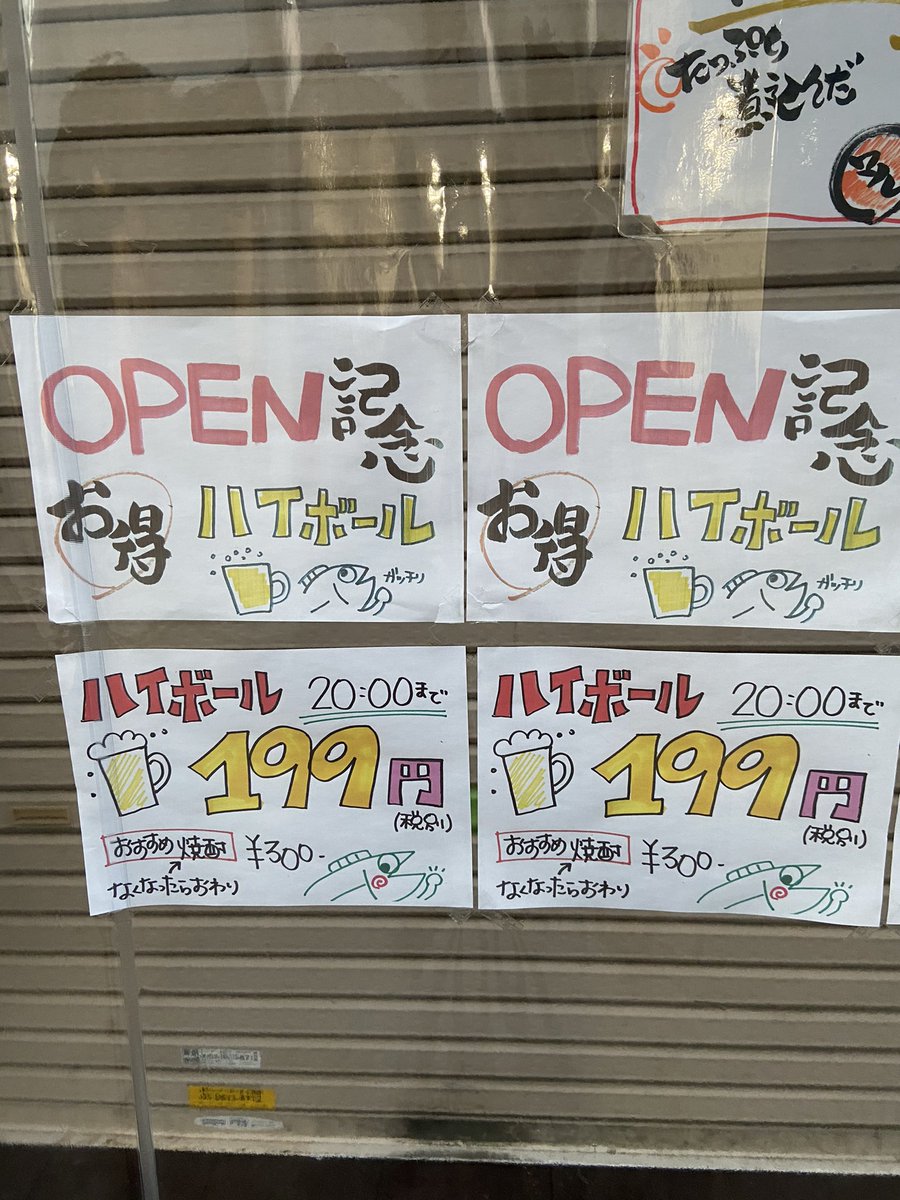 たっぷり
煮込んだ
OPEN記念
お得
ハイボール
ガッチリ
OPEN記念
お得
ハイボール
ガッチリ
ハイボール 20:00まで
199円
(税別)
おすすめ焼酎 ¥300-
なくなったらおわり
ハイボール 20:00まで
199円
(税別)
おすすめ焼酎 ¥300-
なくなったらおわり